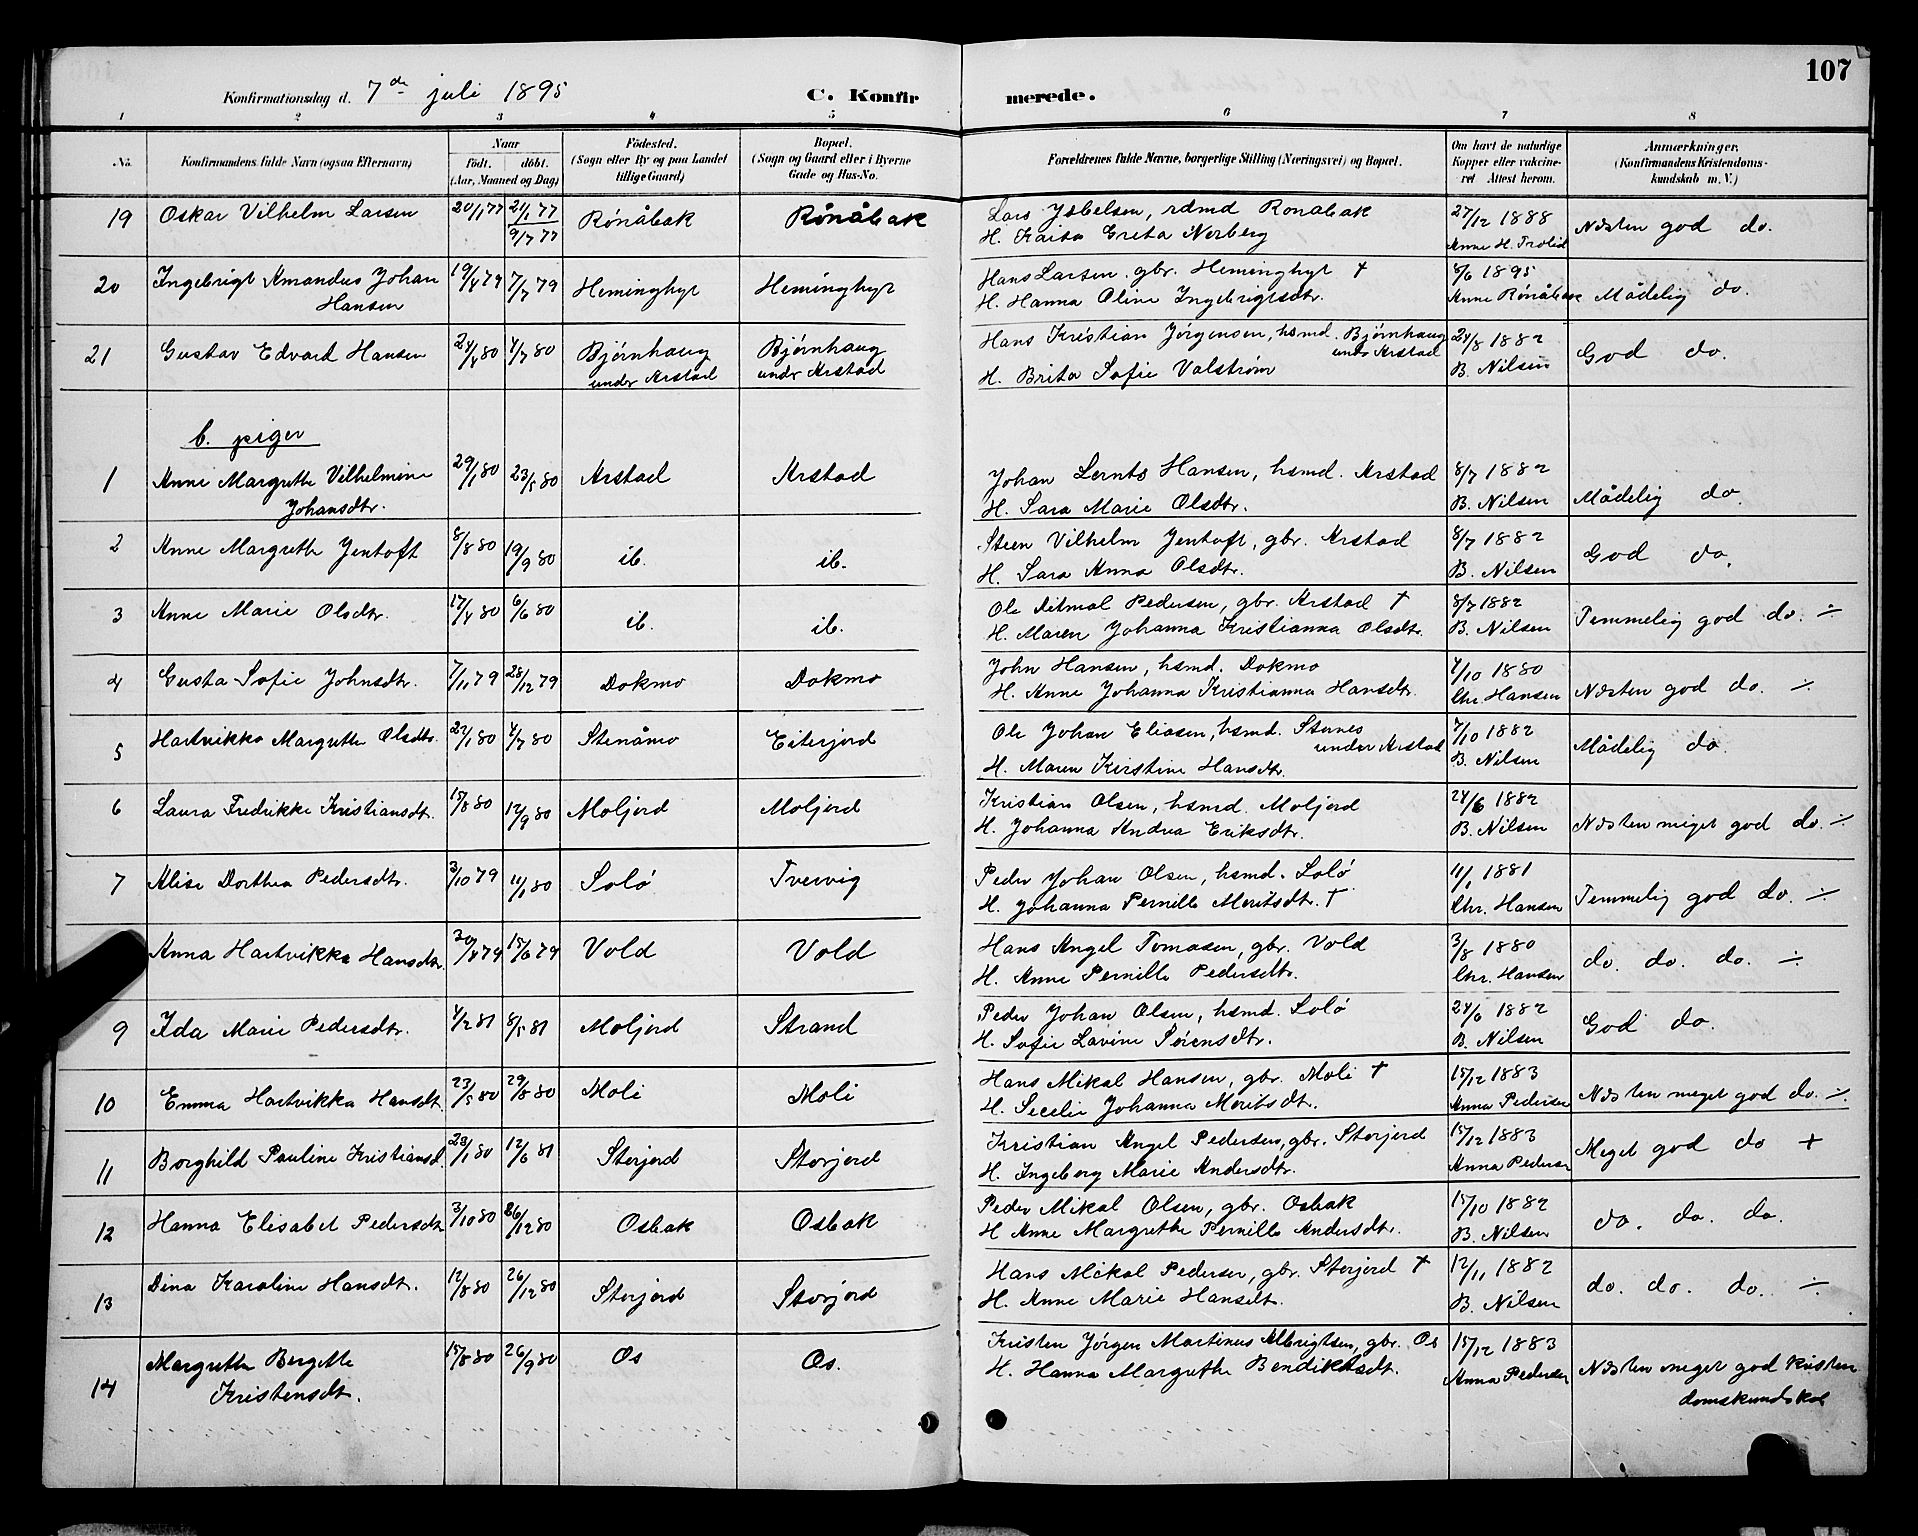 107
Konfirmationsdag d. 7de juli 1895 C. Konfirmerede.
1 2 3 4 5 6 7 8
No. Konfirmandens fulde Navn (ogsaa Efternavn) Naar födt. döbt. (Aar, Maaned og Dag) Födested. (Sogn eller By og paa Landet tillige Gaard) Bopæl. (Sogn og Gaard eller i Byerne Gade og Hus-No. Forældrenes fulde Navne, borgerlige Stilling (Næringsvei) og Bopæl. Om havt de naturlige Kopper eller vakcineret Attest herom. Anmærkninger. (Konfirmandens Kristendomskundskab m. V.)
19 Oskar Vilhelm Larsen 20/1 77 21/1 77 Rönåbak Rönåbak Lars Ysbelsen, rdmd Ronabak 27/12 1888 Næsten god do.
9/7 77 H. Kaisa Greta Norberg Anne H. Trolid
20 Ingebrigt Amandus Johan 19/4 79 7/7 79 Heminghyt Heminghyt Hans Larsen gbr. Heminghyt † 8/6 1895
Hansen H. Hanna Oline Ingebrigtsdtr. Anne Rönåbak Mådelig do.
21 Gustav Edvard Hansen 24/4 80 4/7 80 Bjørnhaug Bjørnhaug Hans Kristian Jörgensen, hsmd. Bjørnhaug 24/8 1882 God do.
under Arstad under Arstad under Arstad
H. Brita Sofie Valstrøm B. Nilsen
b. piger
1 Anne Margrethe Vilhelmine 29/1 80 23/5 80 Arstad Arstad Johan Lernts Hansen, hsmd. Arstad 8/7 1882
Johansdtr. H. Sara Marie Olsdtr. B. Nilsen Mådelig do.
2 Anne Margrethe Jentoft 8/8 80 19/9 80 ib. ib. Steen Vilhelm Jentoft, gbr. Arstad 8/7 1882 God do.
H. Sara Anna Olsdtr. B. Nilsen
3 Anne Marie Olsdtr. 17/4 80 6/6 80 ib. ib. Ole Ditmal Pedersen, gbr. Arstad † 8/7 1882 Temmelig god do. ÷
H. Maren Johanna Kristianna Olsdtr. B. Nilsen
4 Gusta Sofie Johnsdtr. 7/11 79 28/12 79 Dokmo Dokmo John Hansen, hsmd. Dokmo 4/10 1880
H. Anne Johanna Kristianna Hansdtr. Chr. Hansen Næsten god do. ÷
5 Hartvikka Margrethe Olsdtr. 24/1 80 4/7 80 Stenåmo Eiterjord Ole Johan Eliasen, hsmd. Stornes 7/10 1882 Mådelig do.
under Arstad
H. Maren Kirstine Hansdtr. B. Nilsen
6 Laura Fredrikke Kristiansdtr. 15/8 80 12/9 80 Moljord Moljord Kristian Olsen, hsmd. Moljord 24/6 1882
H. Johanna Andrea Eriksdtr. B. Nilsen Næsten meget god do. ÷
7 Alise Dorthea Pedersdtr. 3/10 79 11/1 80 Solö Tvervig Peder Johan Olsen, hsmd. Solö 4/1 1881
H. Johanna Pernille Moritsdtr. † Chr. Hansen Temmelig god do. ÷
Anna Hartvikka Hansdtr. 30/4 79 15/6 79 Vold Vold Hans Angel Tomasen, gbr. Vold 3/8 1880
H. Anne Pernille Pedersdtr. Chr. Hansen do. do. do. ÷
9 Ida Marie Pedersdtr. 4/2 81 8/5 81 Moljord Strand Peder Johan Olsen, hsmd. Solö 24/6 1882 God do.
H. Sofie Lavine Sörensdtr. B. Nilsen
10 Emma Hartvikka Hansdt. 23/5 80 29/8 80 Moli Moli Hans Mikal Hansen, gbr. Moli † 15/12 1883
H. Secilie Johanna Moritsdt. Anna Pedersen Næsten meget god do. ÷
11 Borghild Pauline Kristiansd. 23/1 80 12/6 81 Storjord Storjord Kristian Angel Pedersen, gbr. Storjord 15/12 1883 Meget god do +
H. Ingeborg Marie Andersdtr. Anna Pedersen
12 Hanna Elisabet Pedersdtr. 3/10 80 26/12 80 Osbak Osbak Peder Mikal Olsen, gbr. Osbak 15/10 1882
H Anne Margrethe Pernille Andersdtr. B. Nilsen do. do. do.
13 Dina Karoline Hansdtr. 12/8 80 26/12 80 Storjord Storjord Hans Mikal Pedersen, gbr. Storjord † 12/11 1882 do. do. do. ÷
H. Anne Marie Hansdt. B. Nilsen
14 Margrethe Bergette 15/8 80 26/9 80 Os Os. Kristen Jörgen Martinus Albrigtsen, gbr. Os 15/12 1883
H. Hanna Margrethe Bendiktsdt. Anna Pedersen Næsten meget god kristen
Kristensdt. domskundskab